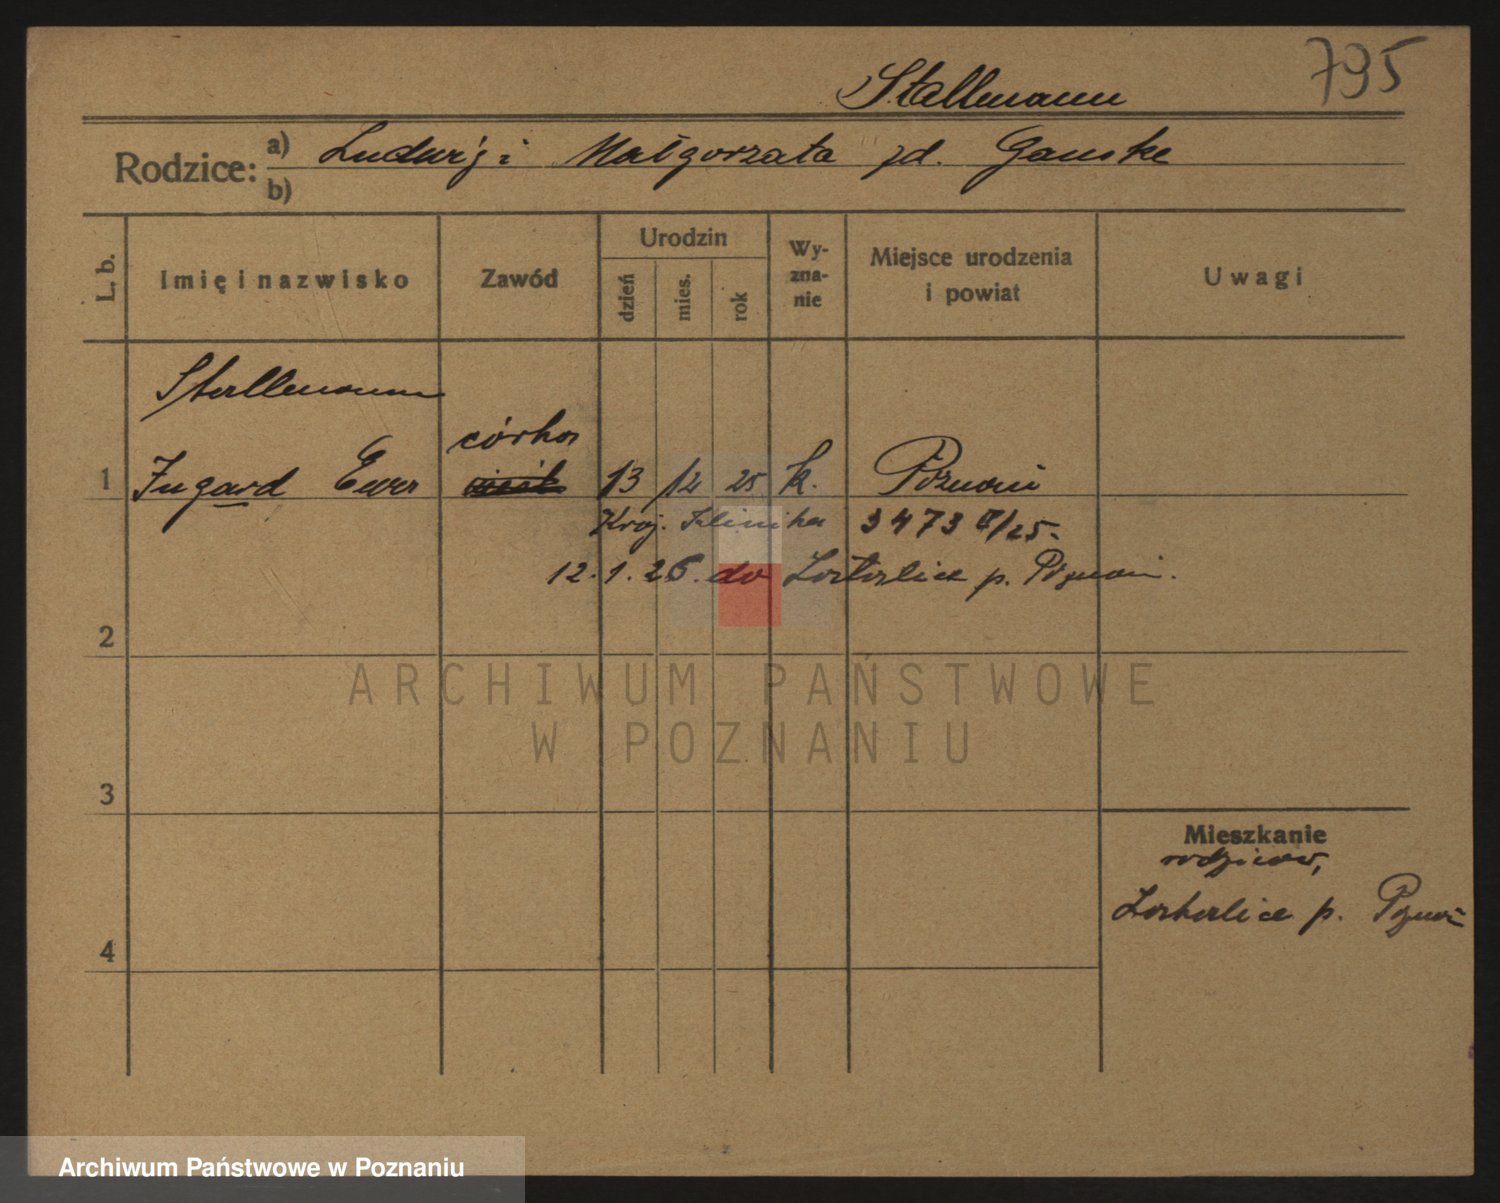 795
Stallmann
Rodzice: a) Ludwig i Małgorzata zd. Ganske
b)
L. b.
Imię i nazwisko
Zawód
Urodzin
dzień
mies.
rok
Wy-
zna-
nie
Miejsce urodzenia
i powiat
Uwagi
Stallmann
córka
1 Ingard Ewa 13 12 25 k. Poznań
Kraj. Klinika 3473 /25.
12.1.26. do p. Poznań.
2
ARCHIWUM PAŃSTWOWE
W POZNANIU
3
Mieszkanie
rodziców,
p. Poznań
4
Archiwum Państwowe w Poznaniu